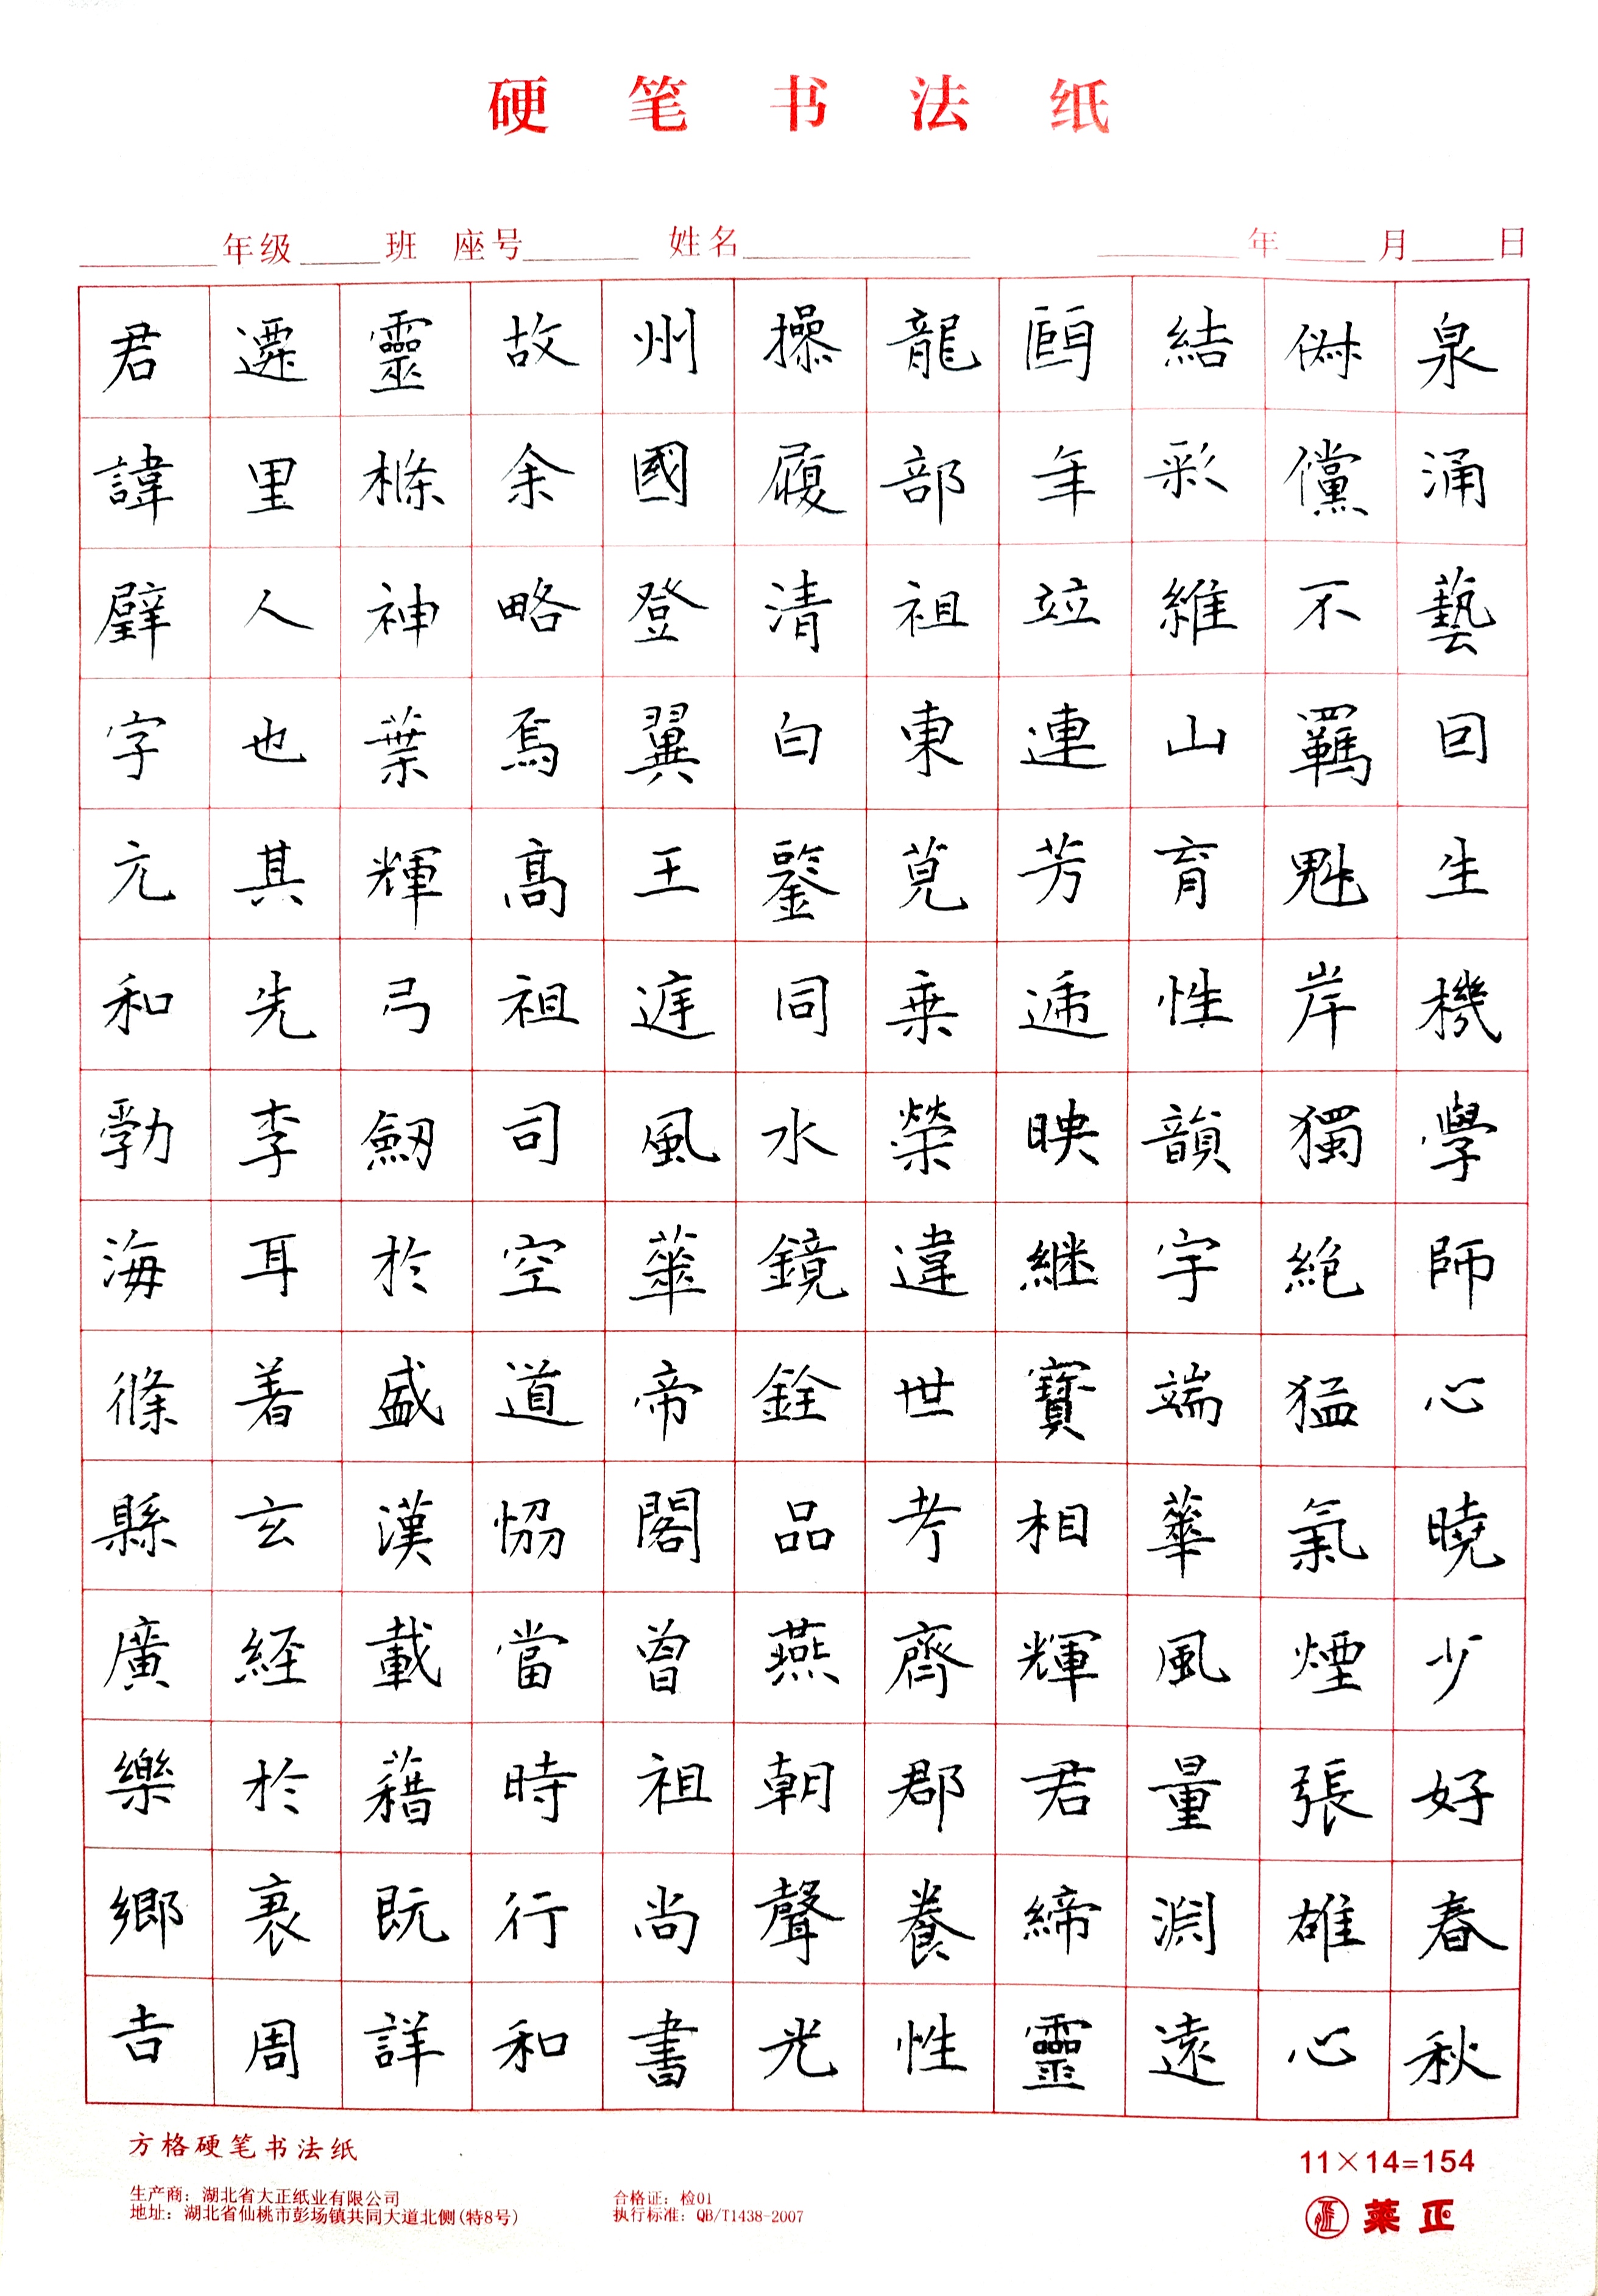 硬笔书法纸
年级 班 座号 姓名 年 月 日
君諱璧字元和勃海條縣廣樂鄉吉
遷里人也其先李耳著玄經於衰周
靈檦神葉輝弓劒於盛漢載藉既詳
故余略焉高祖司空道協當時行和
州國登翼王庭風華帝閣曾祖尚書
操履清白鑒同水鏡銓品燕朝聲光
龍部祖東莞乘榮違世考齊郡養性
頤年竝連芳遞映継寶相輝君締靈
結彩維山育性韻宇端華風量淵遠
俶儻不羈魁岸獨絕猛氣煙張雄心
泉涌藝回生機學師心曉少好春秋
方格硬笔书法纸
11×14=154
生产商：湖北省大正纸业有限公司
地址：湖北省仙桃市彭场镇共同大道北侧(特8号)
合格证：检01
执行标准：QB/T1438-2007
莱正